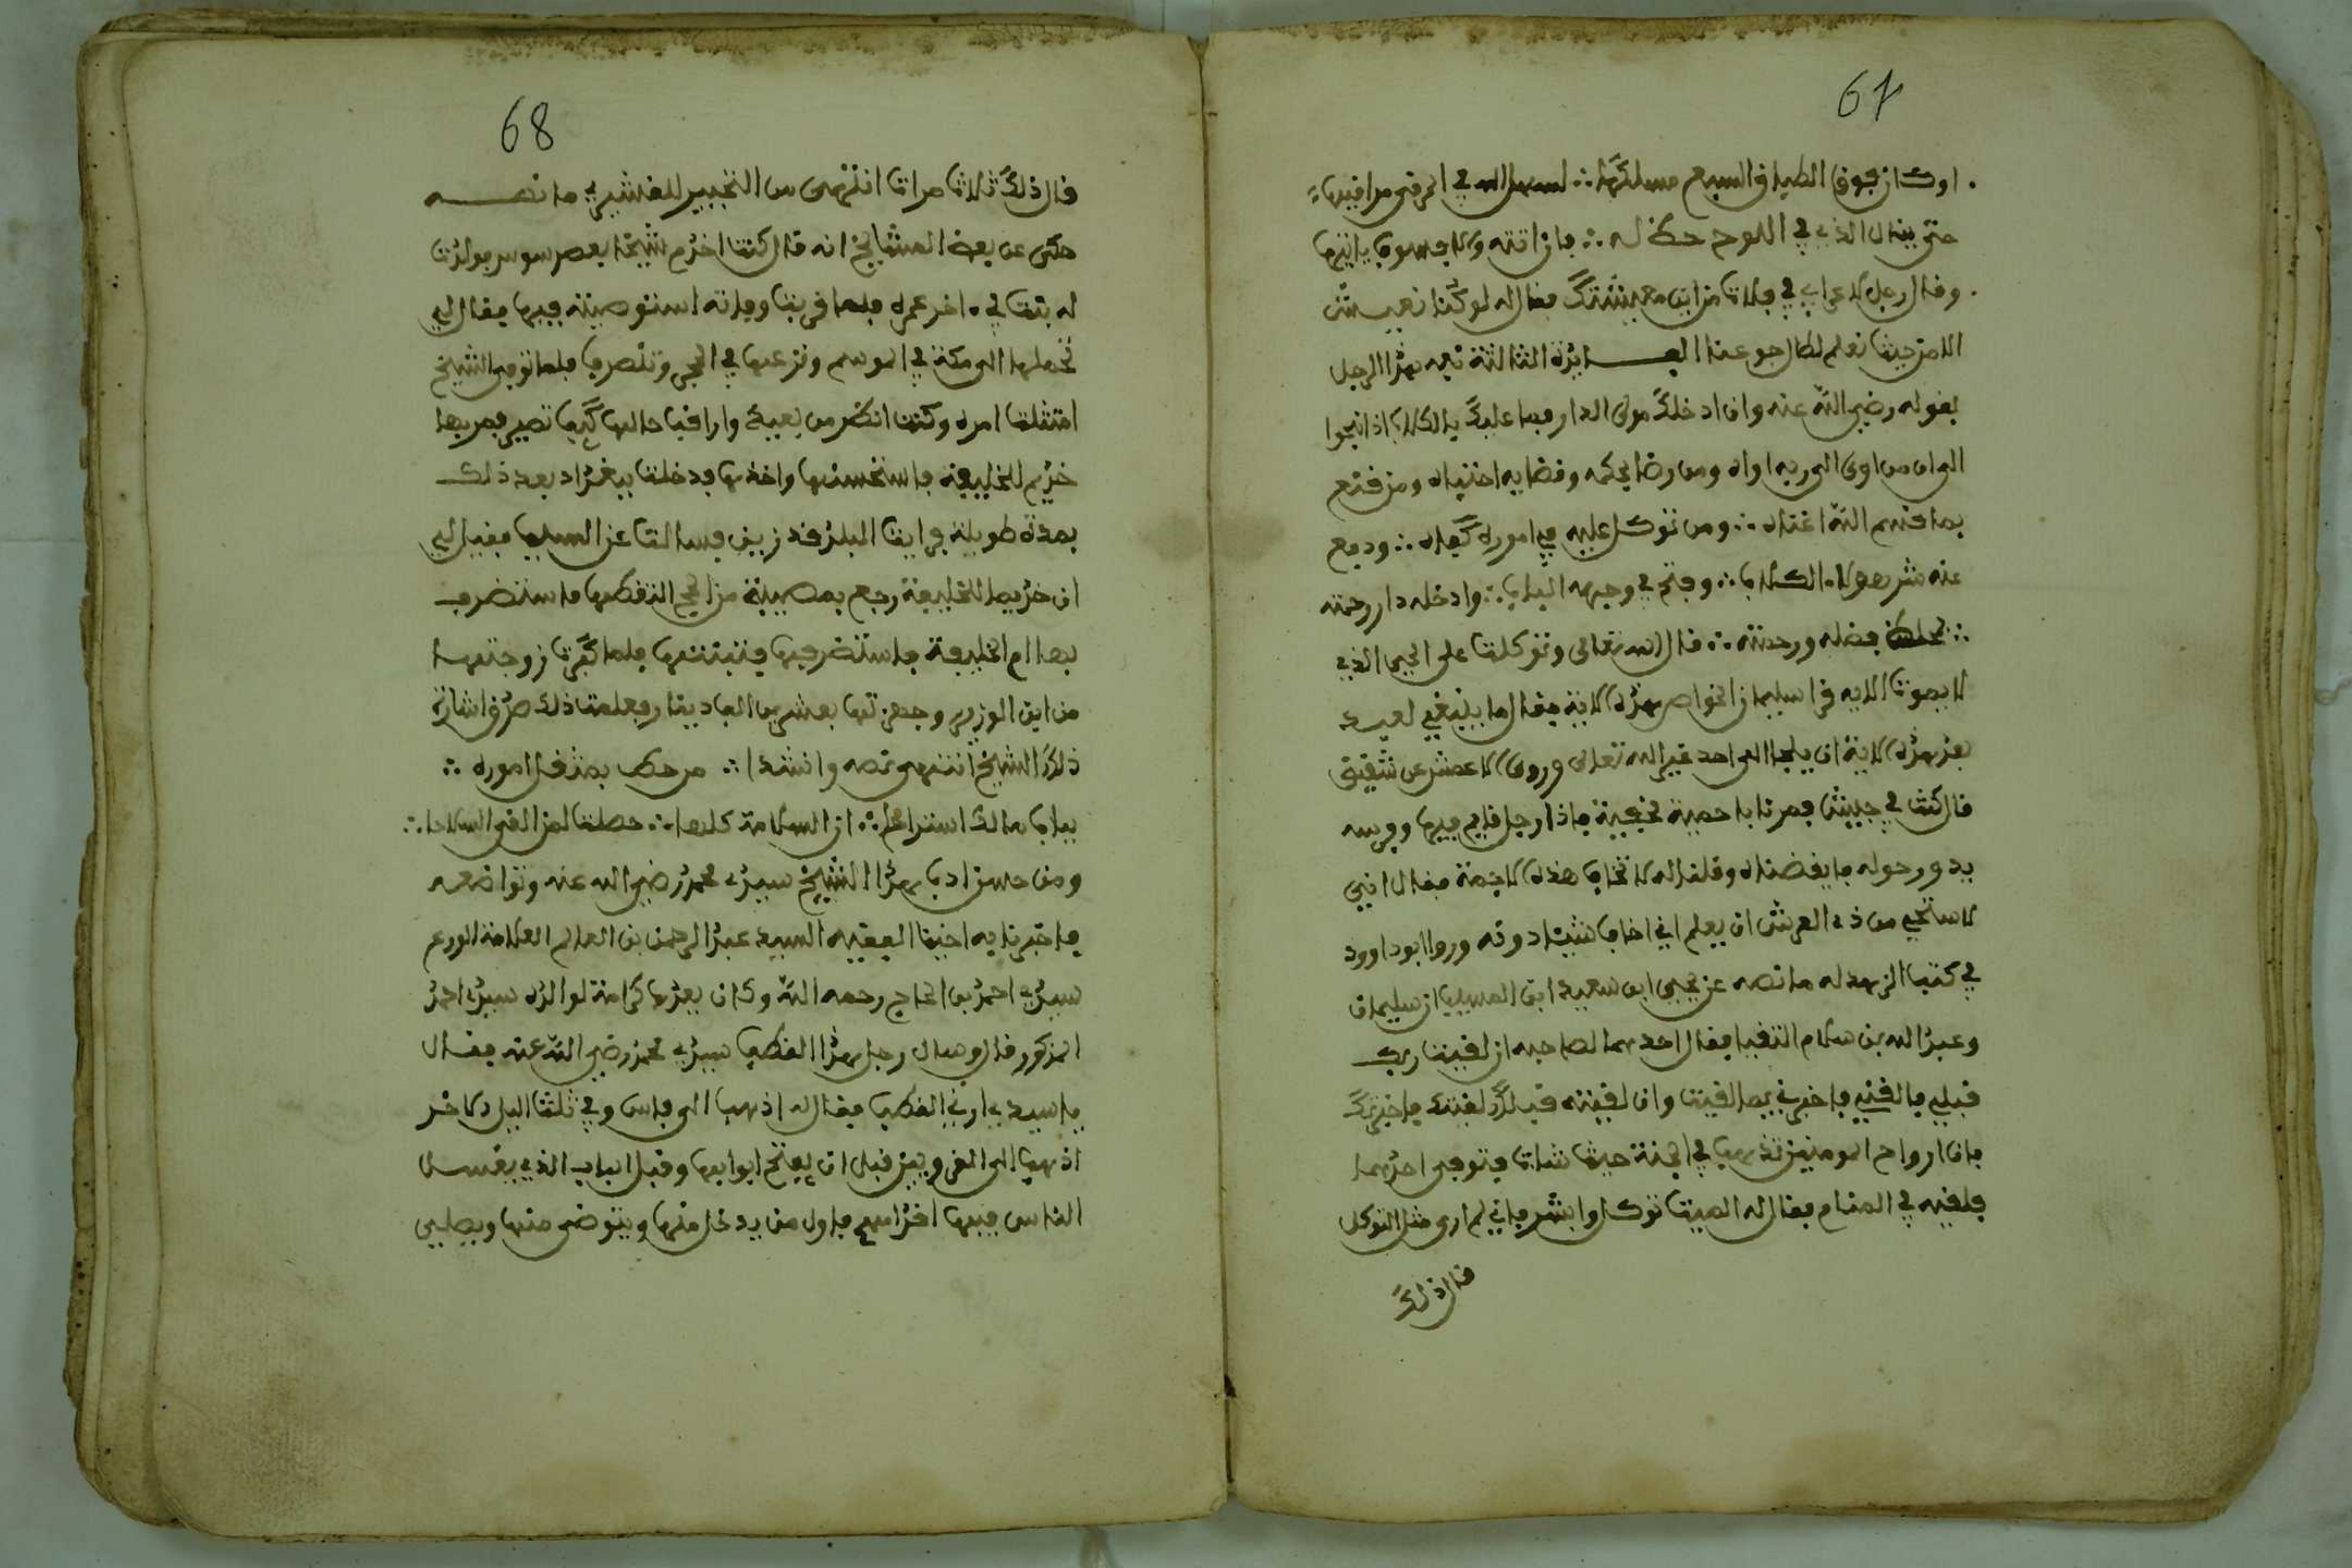 67
اوكان فوق الطباق السبع مسلكها ∴ لسهل الله في المرقى مراقيها
حتى ينال الذي في اللوح حظ له ∴ فان اتته والا فسوف ياتيها
وقال رجل لاعرابي في فلات من اين معيشتك فقال له لو كنا نعيش
الا من حيث نعلم لطال جوعنا الفائدة الثالثة نبه بهذا الرجل
بقوله رضي الله عنه وان ادخلك مولى الدار فما عليك بالكلاب اذا نبحوا
الى ان من اوى الى ربه اواه ومن رضا بحكمه وقضايه اجتباه ومن قنع
بما قسم الله اغناه ∴ ومن توكل عليه في اموره كفاه ∴ ودفع
عنه شر هولاء الكلاب ∴ وفتح في وجهه الباب ∴ وادخله دار رحمته
∴ فضله ورحمته ∴ قال الله تعالى وتوكل على الحي الذي
لا يموت الايه قرا سليمان الخواص هذه الاية فقال ما ينبغي لعبد
بعد هذه الاية ان يلجا الى احد غير الله تعالى وروى الاعمش عن شقيق
قال كنت في جيش فمرنا باجمة مخيفة فاذا رجل نايم فيها وفرسه
يدور حوله فايقضناه وقلنا له لا تخاف هذه الاجمة فقال اني
لاستحي من ذي العرش ان يعلم اني اخاف شيئا دونه وروا ابو داوود
في كتب الزهد له ما نصه عن يحيى ابن سعيد ابن المسيب ان سليمان
وعبد الله بن سلام التقيا فقال احدهما لصاحبه ان لقيت ربك
قبلي فالقني فاخبرني بما لقيت وان لقيته قبلك لقيتك فاخبرتك
فان ارواح المومنين تذهب في الجنة حيث شات فتوفي احدهما
فلقيه في المنام فقال له الميت توكل وابشر فاني لم ارى مثل التوكل
قال ذلك
68
قال ذلك ثلاث مرات انتهى من التحبير للقشيري ما نصه
حكى عن بعض المشايخ انه قال كنت اخدم شيخا بعصر سوس فولدت
له بنت في ءاخر عمره فلما قربت وفاته استوصيته فيها فقال لي
تحملها الى مكة في الموسم وتدعها في الحجر وتنصرف فلما توفى الشيخ
امتثلت امره وكنت انظر من بعيد واراقب حالها كيف تصير فمر بها
خديم للخليفة فاستحسنها واخذها فدخلت ببغداد بعد ذلك
بمدة طويلة فرايت البلد قد زين فسالت عن السبب فقيل لي
ان خديما للخليفة رجع بصبية من الحج التقطها فاستضرفـ
بها ام الخليفة فاستضرفتها فتبنتها فلما كبرت زوجتها
من ابن الوزير وجهزتها بعشرين الف دينار فعلمت ذلك صدق اشارة
ذلك الشيخ انتهى نصه وانشدا ∴ من حط بمثقل اموره ∴
بباب مالك استراحا ∴ ان السلامة كلها ∴ حصلت لمن القى السلاحا ∴
ومن حسن ادب هذا الشيخ سيدي محمد رضي الله عنه وتواضعه
ما اخبرنا به اخينا الفقيه السيد عبد الرحمن بن العالم العلامة الورع
سيدي احمد بن الحاج رحمه الله وكان يعدها كرامة لوالده سيدي احمد
المذكور قال وسال رجل هذا القطب سيدي محمد رضي الله عنه فقال
يا سيدي ارني القطب فقال له اذهب الى فاس وفي ثلث اليل الاخر
اذهب الى القرويين قبل ان يفتح ابوابها وقبل الباب الذي يغسل
الناس فيها اقدامهم فاول من يدخل منها ويتوضى منها ويصلي